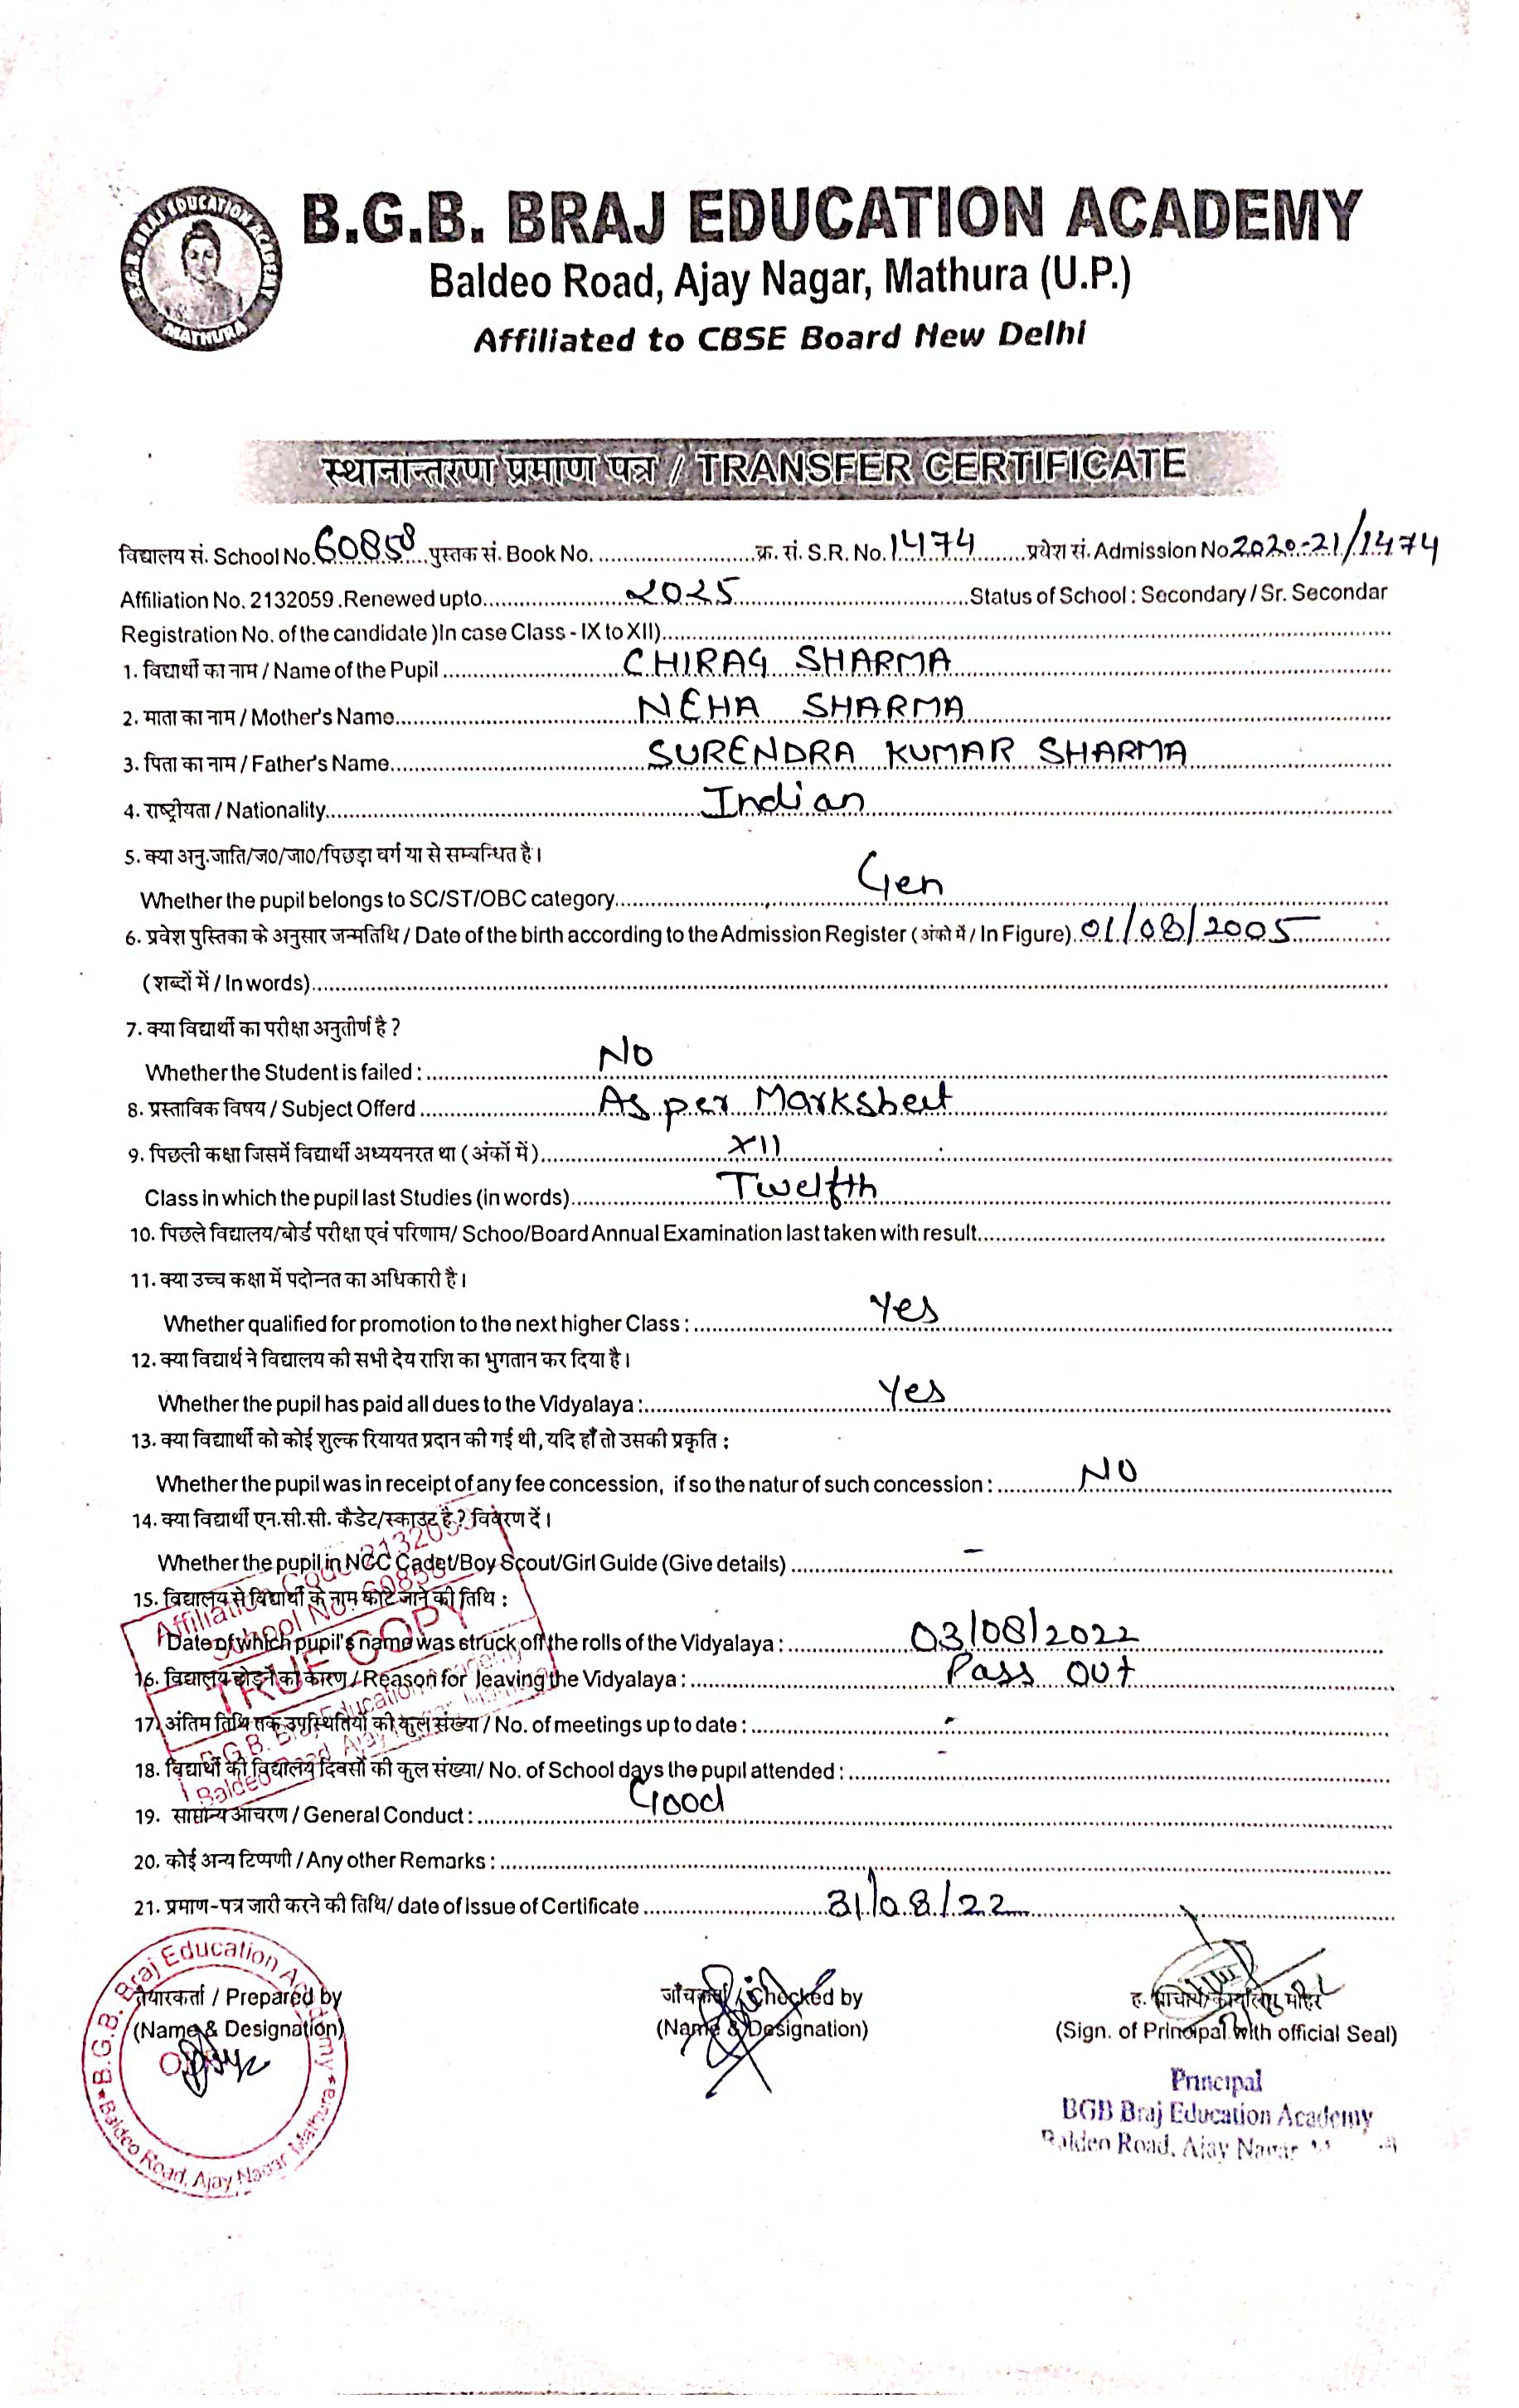 B.G.B. BRAJ EDUCATION ACADEMY
MATHURA
B.G.B. BRAJ EDUCATION ACADEMY
Baldeo Road, Ajay Nagar, Mathura (U.P.)
Affiliated to CBSE Board New Delhi
स्थानान्तरण प्रमाण पत्र / TRANSFER CERTIFICATE
विद्यालय सं. School No. 60858 पुस्तक सं. Book No. क्र. सं. S.R. No. 1474 प्रवेश सं. Admission No. 2020-21/1474
Affiliation No. 2132059 .Renewed upto 2025 Status of School : Secondary / Sr. Secondar
Registration No. of the candidate )In case Class - IX to XII)
1. विद्यार्थी का नाम / Name of the Pupil CHIRAG SHARMA
2. माता का नाम / Mother's Name NEHA SHARMA
3. पिता का नाम / Father's Name SURENDRA KUMAR SHARMA
4. राष्ट्रीयता / Nationality Indian
5. क्या अनु.जाति/ज0/जा0/पिछड़ा वर्ग या से सम्बन्धित है।
Whether the pupil belongs to SC/ST/OBC category Gen
6. प्रवेश पुस्तिका के अनुसार जन्मतिथि / Date of the birth according to the Admission Register ( अंको में / In Figure) 01/08/2005
(शब्दों में / In words)
7. क्या विद्यार्थी का परीक्षा अनुतीर्ण है ?
Whether the Student is failed : NO
8. प्रस्ताविक विषय / Subject Offerd As per Marksheet
9. पिछली कक्षा जिसमें विद्यार्थी अध्ययनरत था ( अंकों में ) XII
Class in which the pupil last Studies (in words) Twelfth
10. पिछले विद्यालय/बोर्ड परीक्षा एवं परिणाम/ Schoo/Board Annual Examination last taken with result
11. क्या उच्च कक्षा में पदोन्नत का अधिकारी है।
Whether qualified for promotion to the next higher Class : Yes
12. क्या विद्यार्थ ने विद्यालय की सभी देय राशि का भुगतान कर दिया है।
Whether the pupil has paid all dues to the Vidyalaya : Yes
13. क्या विद्याार्थी को कोई शुल्क रियायत प्रदान की गई थी, यदि हाँ तो उसकी प्रकृति :
Whether the pupil was in receipt of any fee concession, if so the natur of such concession : NO
14. क्या विद्यार्थी एन.सी.सी. कैडेट/स्काउट है ? विवरण दें।
Whether the pupil in NCC Cadet/Boy Scout/Girl Guide (Give details) -
15. विद्यालय से विद्यार्थी के नाम काटे जाने की तिथि :
Date of which pupil's name was struck off the rolls of the Vidyalaya : 03/08/2022
16. विद्यालय छोड़ने का कारण / Reason for leaving the Vidyalaya : Pass out
17. अंतिम तिथि तक उपस्थितियों की कुल संख्या / No. of meetings up to date : -
18. विद्यार्थी की विद्यालय दिवसों की कुल संख्या/ No. of School days the pupil attended : -
19. सामान्य आचरण / General Conduct : Good
20. कोई अन्य टिप्पणी / Any other Remarks :
21. प्रमाण-पत्र जारी करने की तिथि/ date of Issue of Certificate 31/08/22
Affiliation Code 2132059
School No. 60858
TRUE COPY
B.G.B. Braj Education Academy
Baldeo Road, Ajay Nagar,
तैयारकर्ता / Prepared by
(Name & Designation)
B.G.B. Braj Education Academy
Baldeo Road, Ajay Nagar Mathura
जाँचकर्ता / Checked by
(Name & Designation)
(Sign. of Principal with official Seal)
Principal
BGB Braj Education Academy
Baldeo Road, Ajay Nagar